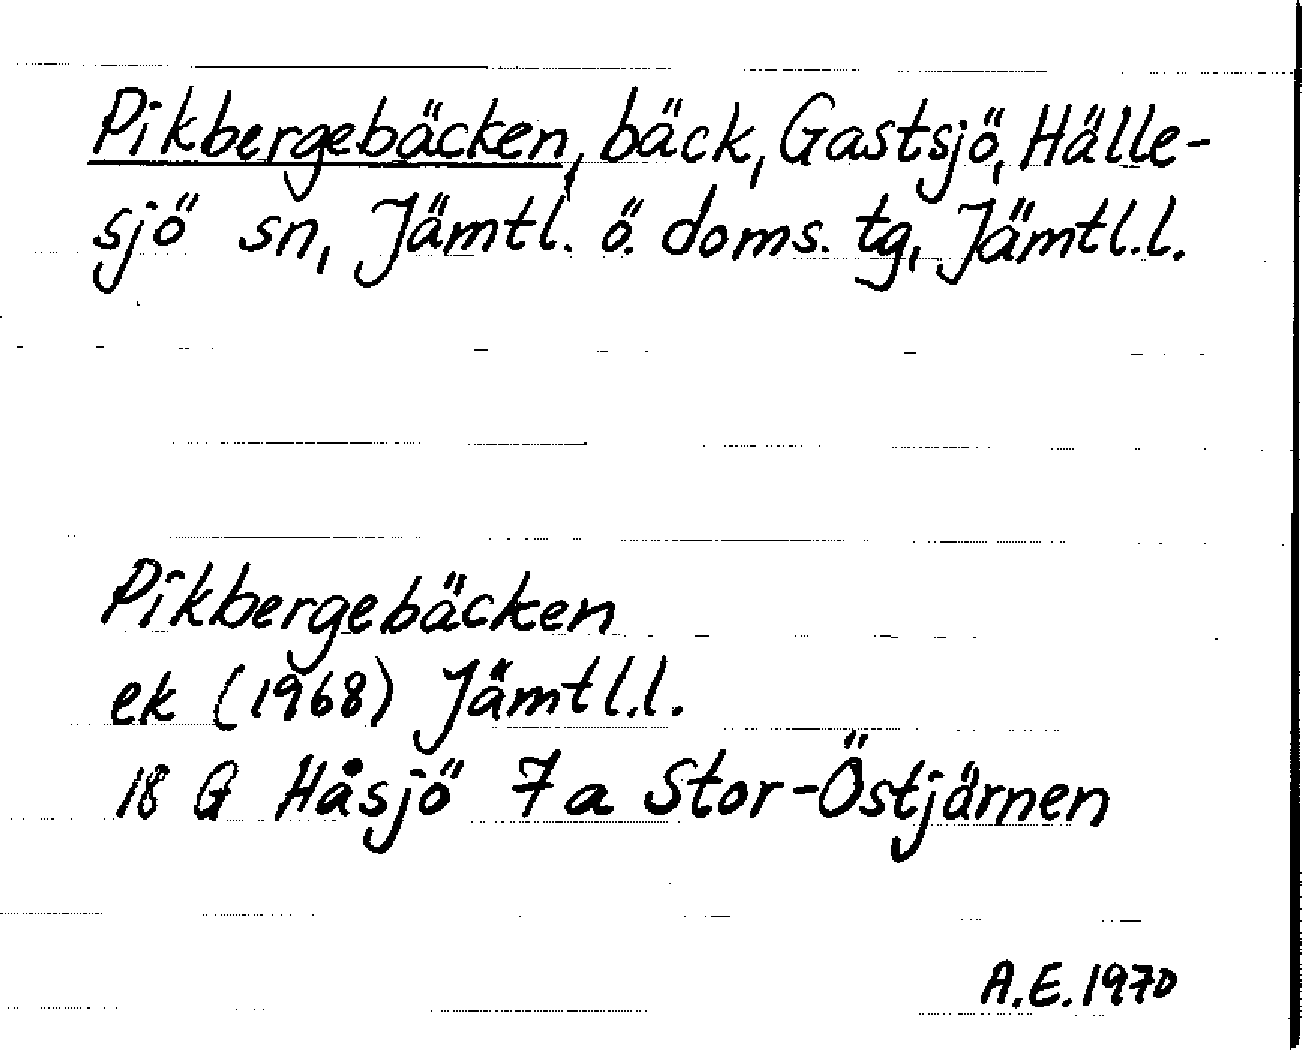 Pikbergebäcken, bäck, Gastsjö, Hälle-
sjö sn, Jämtl. ö. doms. tg, Jämtl.l.
Pikbergebäcken
ek (1968) Jämtl.l.
18 G Håsjö 7a Stor-Östjärnen
A.E. 1970